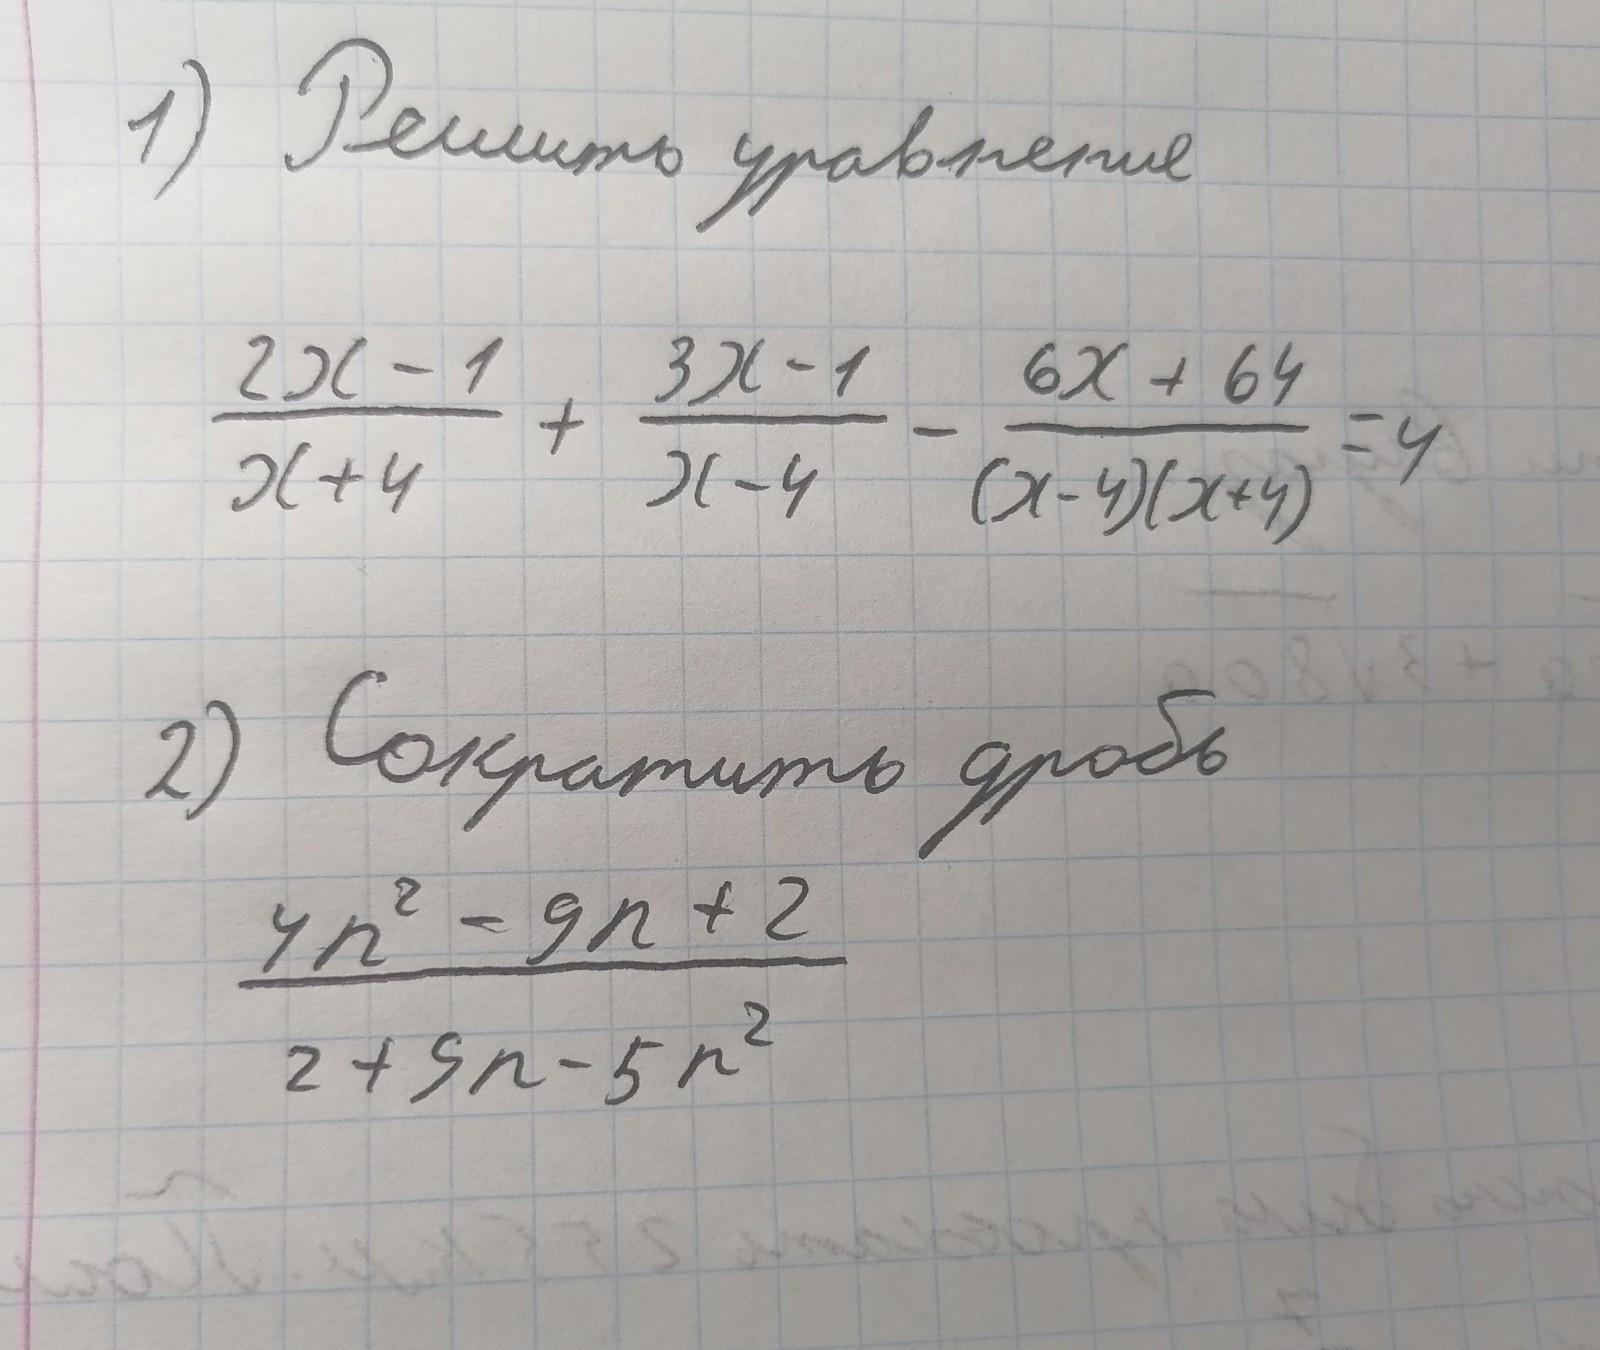 1) Решить уравнение
\frac{2x-1}{x+4} + \frac{3x-1}{x-4} - \frac{6x+64}{(x-4)(x+4)} = 4
2) Сократить дробь
\frac{4n^2-9n+2}{2+9n-5n^2}